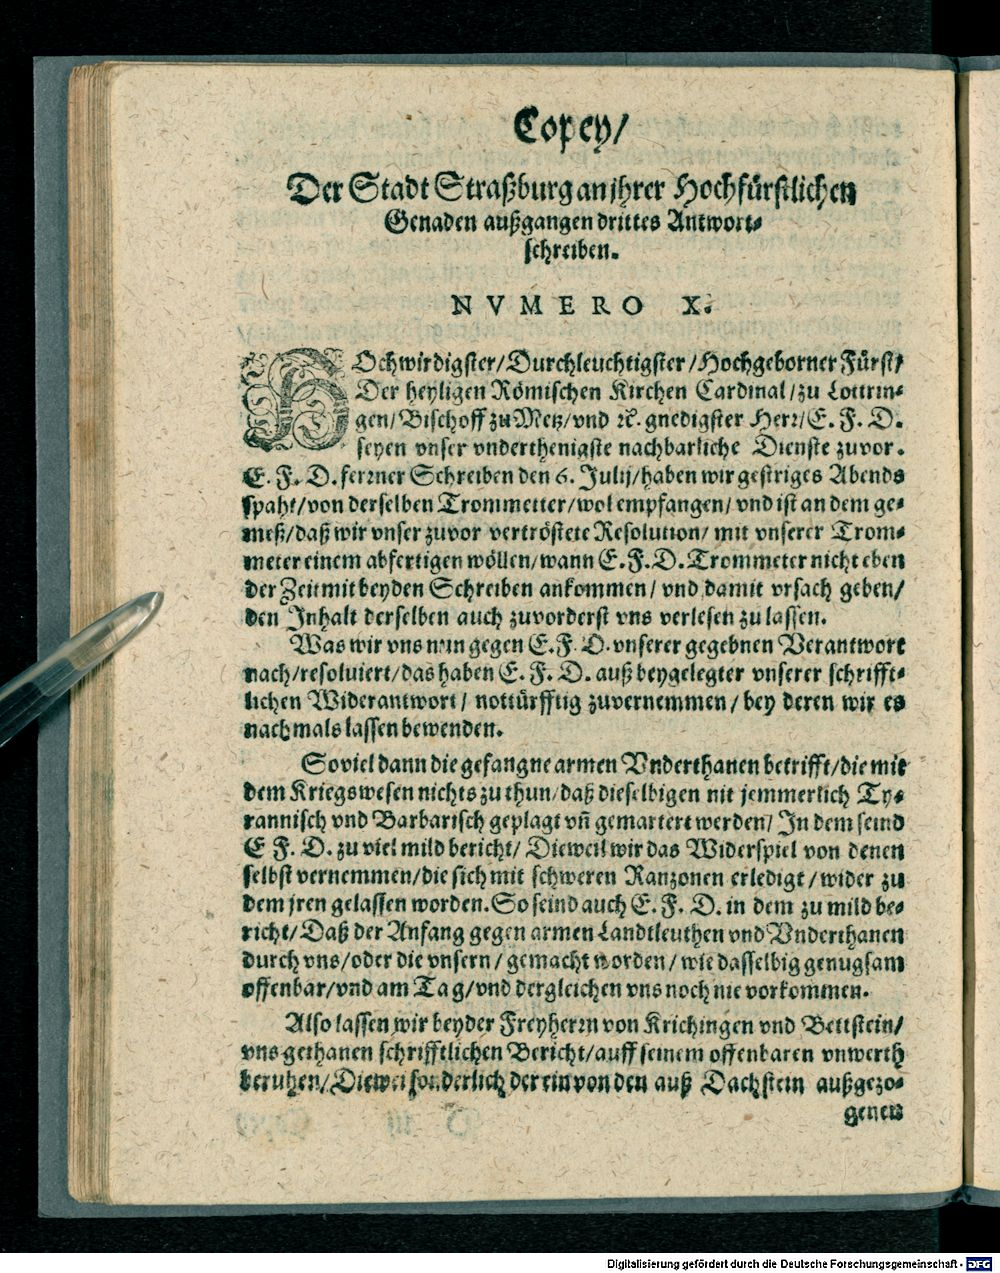 Copey/
Der Stadt Straßburg an jhrer Hochfürstlichen
Genaden außgangen drittes Antwort-
schreiben.
NVMERO X.
HOchwirdigster/Durchleuchtigster/Hochgeborner Fürst/
Der heyligen Römischen Kirchen Cardinal/zu Lottrin-
gen/Bischoff zu Metz/vnd ꝛc. gnedigster Herr/E. F. D.
seyen vnser vnderthenigste nachbarliche Dienste zuvor.
E. F. D. ferrner Schreiben den 6. Julij/haben wir gestriges Abends
spaht/von derselben Trommetter/wol empfangen/ vnd ist an dem ge-
meß/daß wir vnser zuvor vertröstete Resolution/ mit vnserer Trom-
meter einem abfertigen wöllen/wann E. F. D. Trommeter nicht eben
der Zeit mit beyden Schreiben ankommen/ vnd damit vrsach geben/
den Inhalt derselben auch zuvorderst vns verlesen zu lassen.
Was wir vns nun gegen E. F. D. vnserer gegebnen Verantwort
nach/resoluiert/das haben E. F. D. auß beygelegter vnserer schrifft-
lichen Widerantwort/ nottürfftig zuvernemmen/ bey deren wir es
nachmals lassen bewenden.
Soviel dann die gefangne armen Vnderthanen betrifft/die mit
dem Kriegswesen nichts zu thun/daß dieselbigen nit jemmerlich Ty-
rannisch vnd Barbarisch geplagt vñ gemartert werden/ In dem seind
E F. D. zu viel mild bericht/ Dieweil wir das Widerspiel von denen
selbst vernemmen/die sich mit schweren Ranzonen erledigt/wider zu
dem jren gelassen worden. So seind auch E. F. D. in dem zu mild be-
richt/ Daß der Anfang gegen armen Landtleuthen vnd Vnderthanen
durch vns/oder die vnsern/ gemacht worden/ wie dasselbig genugsam
offenbar/vnd am Tag/vnd dergleichen vns noch nie vorkommen.
Also lassen wir beyder Freyherrn von Krichingen vnd Bettstein/
vns gethanen schrifftlichen Bericht/auff seinem offenbaren vnwerth
beruhen/ sonderlich der ein von den auß Dachstein außgezo-
genen
Digitalisierung gefördert durch die Deutsche Forschungsgemeinschaft - DFG